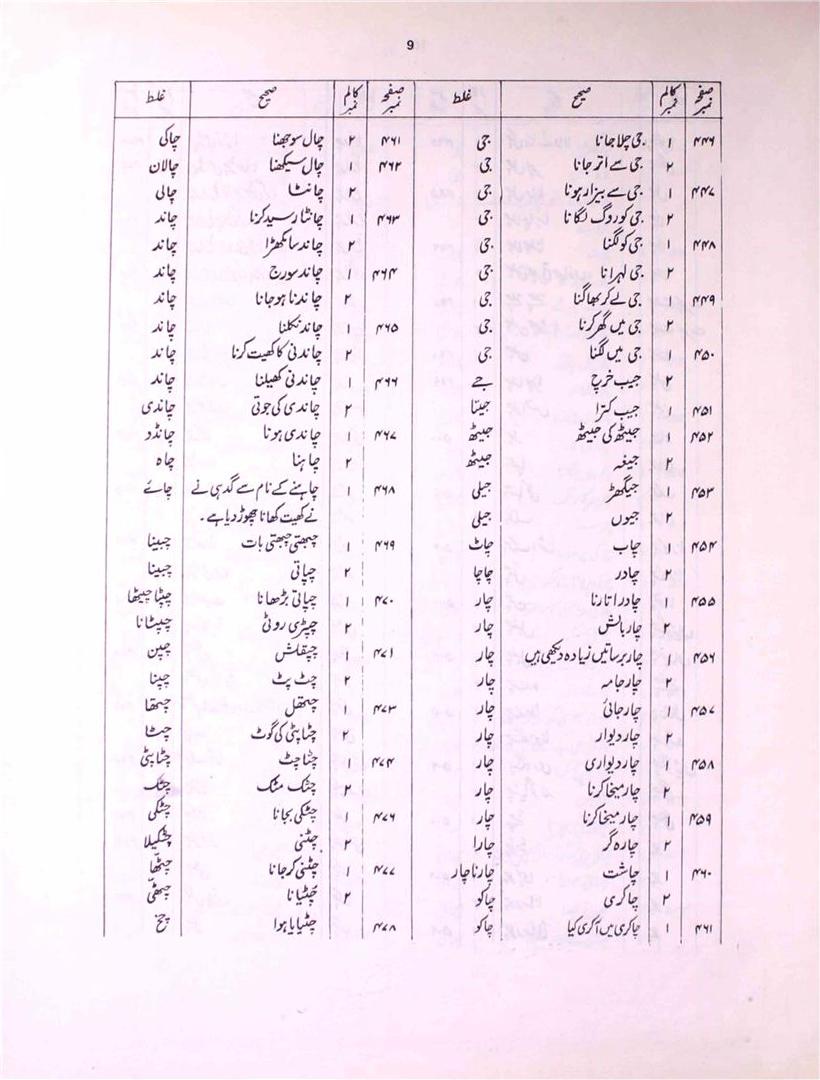 9
صفحہ نمبر کالم نمبر صحیح غلط صفحہ نمبر کالم نمبر صحیح غلط
۴۴۶ ۱ جی چلا جانا جی ۴۶۱ ۲ چال سوجھنا چاکی
۲ جی سے اتر جانا جی ۴۶۲ ۱ چال سیکھنا چالان
۴۴۷ ۱ جی سے بیزار ہونا جی ۲ چانٹا چالی
۲ جی کو روگ لگانا جی ۴۶۳ ۱ چانٹا رسید کرنا چاند
۴۴۸ ۱ جی کو لگنا جی ۲ چاند سا مکھڑا چاند
۲ جی لہرانا جی ۴۶۴ ۱ چاند سورج چاند
۴۴۹ ۱ جی لے کر بھاگنا جی ۲ چاندنا ہو جانا چاند
۲ جی میں گھر کرنا جی ۴۶۵ ۱ چاند نکلنا چاند
۴۵۰ ۱ جی میں لگنا جی ۲ چاندنی کا کھیت کرنا چاند
۲ جیب خرچ جے ۴۶۶ ۱ چاندنی کھیلنا چاند
۴۵۱ ۱ جیب کترا جیتا ۲ چاندی کی جوتی چاندی
۴۵۲ ۱ جیٹھ کی جیٹھ جیٹھ ۴۶۷ ۱ چاندی ہونا چانڈد
۲ جیغہ جیٹھ ۲ چاہنا چاہ
۴۵۳ ۱ جیگھڑ جیلی ۴۶۸ ۱ چاہنے کے نام سے گدہی نے چاۓ
۲ جیوں جیلی نے کھیت کھانا چھوڑ دیا ہے۔
۴۵۴ ۱ چاب چاٹ ۴۶۹ ۱ چبھتی چبھتی بات چبینا
۲ چادر چاچا ۲ چپاتی چبینا
۴۵۵ ۱ چادر اتارنا چار ۴۷۰ ۱ چپاتی بڑھانا چپٹا چپٹھا
۲ چار بالش چار ۲ چپڑی روٹی چپٹانا
۴۵۶ ۱ چار برساتیں زیادہ دیکھی ہیں چار ۴۷۱ ۱ چپقلش چپن
۲ چار جامہ چار ۲ چٹ پٹ چپنا
۴۵۷ ۱ چار جائی چار ۴۷۳ ۱ چتھل چتھا
۲ چار دیوار چار ۲ چٹاپٹی کی گوٹ چٹا
۴۵۸ ۱ چار دیواری چار ۴۷۴ ۱ چٹا چٹ چٹاپٹی
۲ چار میخا کرنا چار ۲ چٹک مٹک چٹک
۴۵۹ ۱ چار میخا کرنا چار ۴۷۶ ۱ چٹکی بجانا چٹکی
۲ چارہ گر چارا ۲ چٹنی چٹکیلا
۴۶۰ ۱ چاشت چار ناچار ۴۷۷ ۱ چٹنی کر جانا چٹھا
۲ چاکری چاکو ۲ چُٹیانا چٹھی
۴۶۱ ۱ چاکری میں آکری کیا چاکو ۴۷۸ چٹیایا ہوا چخ